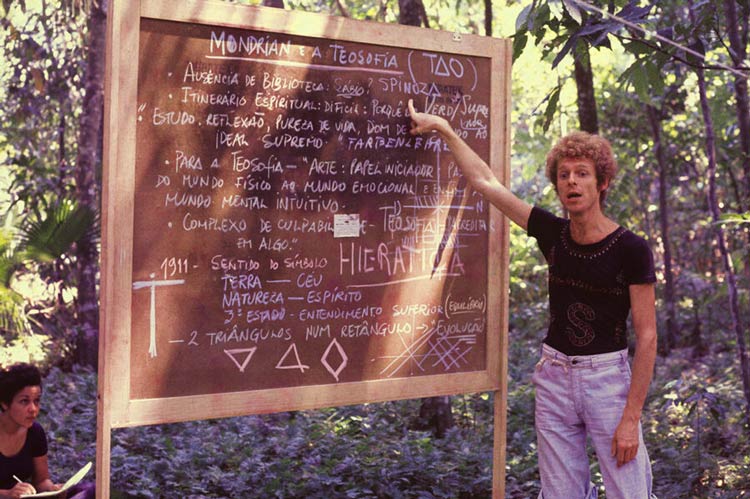 MONDRIAN E A TEOSOFIA (TAO)
• AUSÊNCIA DE BIBLIOTECA: SÁBIO? SPINOZA
• ITINERÁRIO ESPIRITUAL: DIFÍCIL: PORQUÊ VERD/
"ESTUDO, REFLEXÃO, PUREZA DE VIDA, DOM DE AO
IDEAL SUPREMO"
• PARA A TEOSOFIA — "ARTE: PAPEL INICIADOR
DO MUNDO FÍSICO AO MUNDO EMOCIONAL E EN
MUNDO MENTAL INTUITIVO.
• COMPLEXO DE TEOSOFIA ACREDITAR
EM ALGO."
HIERATICA
1911 - SENTIDO DO SÍMBOLO
TERRA — CÉU
NATUREZA — ESPÍRITO
3º ESTADO - ENTENDIMENTO SUPERIOR (EQUILÍBRIO)
— 2 TRIÂNGULOS NUM RETÂNGULO → "EVOLUÇÃO
S